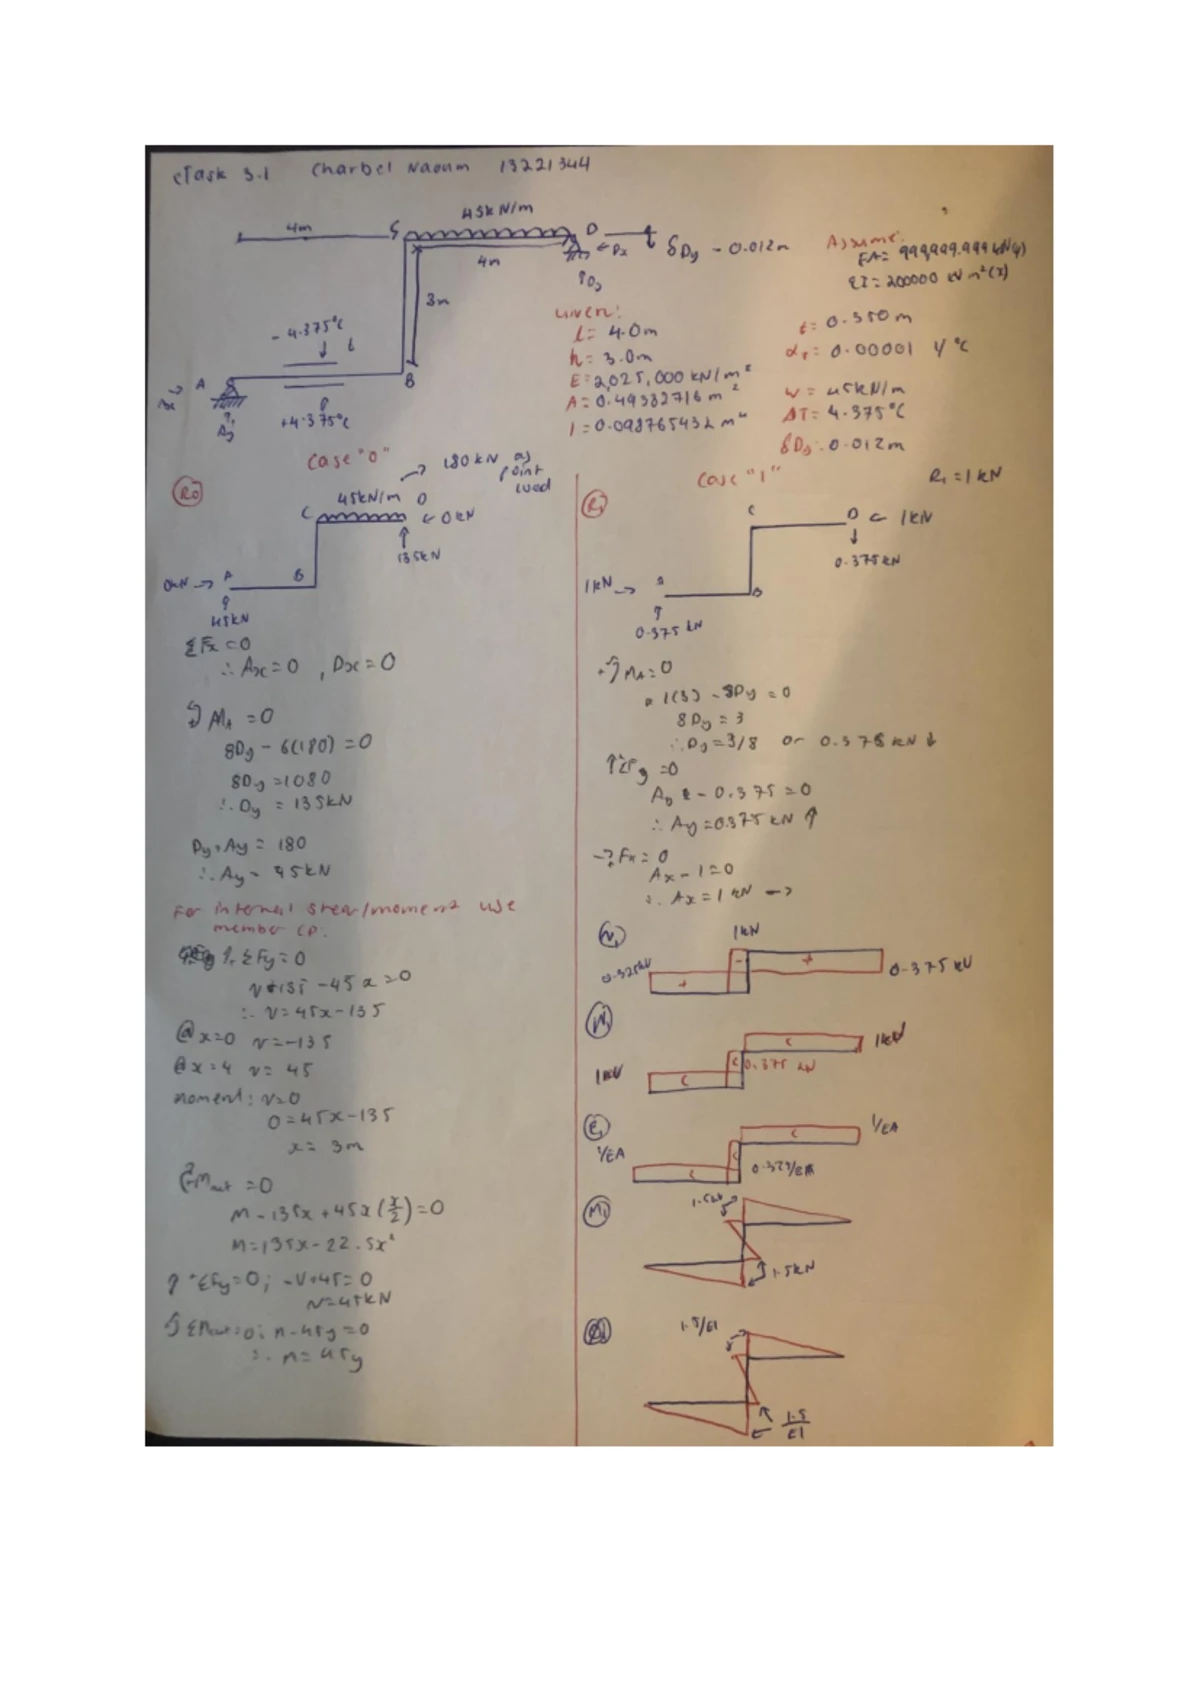 eTask 3.1 Charbel Naoum 13221344
45kN/m
4m C D
← Dx δDy - 0.012m
4m
↑Dy
3m
- 4.375°C
↓ t
A B
Ax
Ay
+4.375°C
Assume:
EA = 999,999.999 kN(y)
EI = 200000 kN m²(x)
Given:
L = 4.0m
h = 3.0m
E = 2,025,000 kN/m²
A = 0.49382716 m²
I = 0.098765432 m⁴
t = 0.350m
αT = 0.00001 1/°C
w = 45kN/m
ΔT = 4.375°C
δDy = 0.012m
Case "0"
R0
→ 180kN as
point
load
45kN/m D
C ← 0kN
↑
135kN
0kN → A B
↑
45kN
ΣFx=0
∴ Ax = 0 , Dx = 0
MA = 0
8Dy - 6(180) = 0
8Dy = 1080
∴ Dy = 135kN
Dy + Ay = 180
∴ Ay = 45kN
For internal shear/moment use
member CD.
ΣFy = 0
V+135 - 45x = 0
∴ V = 45x - 135
@ x=0 V = -135
@ x=4 V = 45
moment: V=0
0 = 45x - 135
x = 3m
Mcut = 0
M - 135x + 45x (x/2) = 0
M = 135x - 22.5x²
↑ +ΣFy=0; -V+45=0
V=45kN
ΣMcut=0; M-45y=0
∴ M = 45y
Case "1" R1 = 1kN
R1
C D ← 1kN
↓
0.375kN
1kN → A B
↑
0.375 kN
MA = 0
1(3) - 8Dy = 0
8Dy = 3
∴ Dy = 3/8 or 0.375 kN ↓
↑ΣFy = 0
Ay - 0.375 = 0
∴ Ay = 0.375 kN ↑
→ Fx = 0
Ax - 1 = 0
∴ Ax = 1 kN →
V1 1kN
0.325kN + - + 0.375 kN
N1
1kN C C 0.375 kN C 1kN
E1
1/EA C C 0.375/EA C 1/EA
M1
1.5kN
1.5kN
1.5/EI
1.5/EI